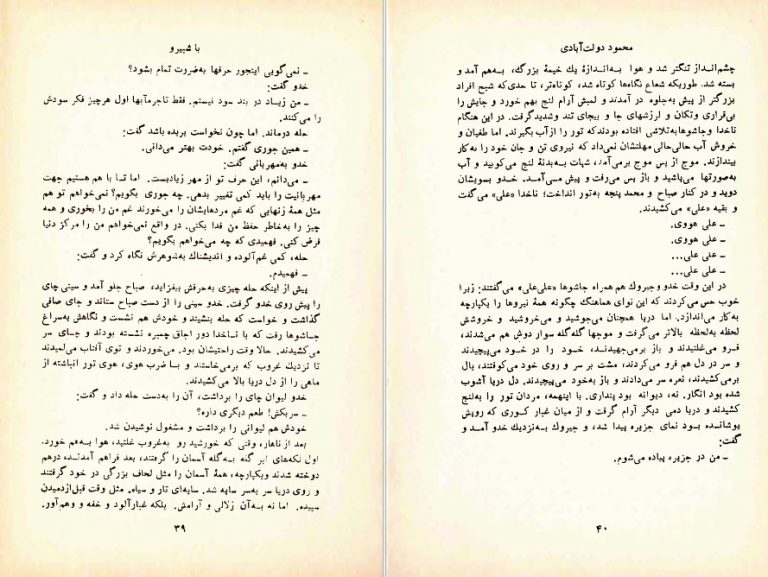 با شبیرو
ـ نمی‌گویی اینجور حرفها به‌ضررت تمام بشود؟
خدو گفت:
ـ من زیاد در بند سود نیستم. فقط تاجرمآبها اول هرچیز فکر سودش
را می‌کنند.
حله درماند. اما چون نخواست بریده باشد گفت:
ـ همین جوری گفتم. خودت بهتر می‌دانی.
خدو به‌مهربانی گفت:
ـ می‌دانم، این حرف تو از مهر زیادیست. اما تما با هم هستیم جهت
مهربانیت را باید کمی تغییر بدهی. چه جوری بگویم؟ نمی‌خواهم تو هم
مثل همهٔ زنهایی که غم مردهایشان را می‌خورند غم من را بخوری و همه
چیز را به‌خاطر حفظ من فدا بکنی. در واقع نمی‌خواهم من را مرکز دنیا
فرض کنی. فهمیدی که چه می‌خواهم بگویم؟
حله، کمی غم‌آلوده و اندیشناك به‌شوهرش نگاه کرد و گفت:
ـ فهمیدم.
پیش از اینکه حله چیزی به‌حرفش بیفزاید، صباح جلو آمد و سینی چای
را پیش روی خدو گرفت. خدو سینی را از دست صباح ستاند و جای صافی
گذاشت و خواست که حله بنشیند و خودش هم نشست و نگاهش به‌سراغ
جاشوها رفت که با ناخدا دور اجاق چمبره نشسته بودند و چـای سر
می‌کشیدند. حالا وقت راحتیشان بود. می‌خوردند و توی آفتاب می‌لمیدند
تا نزدیك غروب که برمی‌خاستند و بـا ضرب هوی، هوی تور انباشته از
ماهی را از دل دریا بالا می‌کشیدند.
خدو لیوان چای را برداشت، آن را به‌دست حله داد و گفت:
ـ سربکش! طعم دیگری داره؟
خودش هم لیوانی را برداشت و مشغول نوشیدن شد.
بعد از ناهار، وقتی که خورشید رو به‌غروب غلتید، هوا به‌هم خورد.
اول تکه‌های ابر گله به‌گله آسمان را گرفتند، بعد فراهم آمدنـد، درهم
دوخته شدند ویکپارچه، همهٔ آسمان را مثل لحاف بزرگی در خود گرفتند
و روی دریا سر به‌سر سایه شد. سایه‌ای تار و سیاه. مثل وقت قبل‌ازدمیدن
سپیده. اما نه به‌آن زلالی و آرامش. بلکه غبارآلود و خفه و وهم‌آور.
۳۹
محمود دولت‌آبادی
چشم‌انداز تنگتر شد و هوا به‌اندازهٔ یك خیمهٔ بزرگ، به‌هم آمد و
بسته شد. طوریکه شعاع نگاهها کوتاه شد، کوتاه‌تر، تا حدی‌که شبح افراد
بزرگتر از پیش به‌جلوه در آمدند و لمبش آرام لنج بهم خورد و جایش را
بی‌قراری وتکان و لرزشهای جا و بیجای تند وشدیدگرفت. در این هنگام
ناخدا وجاشوهابه‌تلاشی افتاده بودندکه تور را ازآب بگیرند. اما طغیان و
خروش آب حالی‌حالی مهلتشان نمی‌داد که نیروی تن و جان خود را به‌کار
بیندازند. موج از پس موج برمی‌آمد، شپات به‌بدنهٔ لنج می‌کوبید و آب
به‌صورتها می‌پاشید و باز پس می‌رفت و پیش مـی‌آمـد. خدو بسویشان
دوید و در کنار صباح و محمد پنجه به‌تور انداخت؛ ناخدا «علی» می‌گفت
و بقیه «علی» می‌کشیدند.
ـ علی هووی.
ـ علی هووی.
ـ علی علی...
ـ علی علی...
در این وقت خدو وجیروك هم همراه جاشوها «علی‌علی» می‌گفتند: زیرا
خوب حس می‌کردند که این نوای هماهنگ چگونه همهٔ نیروها را یکپارچه
به‌کار می‌اندازد. اما دریا همچنان می‌جوشید و می‌خروشید و خروشش
لحظه به‌لحظه بالاتر می‌گرفت و موجها گله‌گله سوار دوش هم می‌شدند،
فـرو می‌غلتیدند و باز برمی‌جهیدنـد، خـود را در خـود می‌پیچیدند
و سر در دل هم فرو می‌کردند، مشت بر سر و روی خود می‌کوفتند، یال
برمی‌کشیدند، نعره سر می‌دادند و باز به‌خود می‌پیچیدند. دل دریا آشوب
شده بود انگار. نه، دیوانه بود پنداری. با اینهمه، مردان تور را به‌لنج
کشیدند و دریا دمی دیگر آرام گرفت و از میان غبار کـوری که رویش
پوشانده بـود نمای جزیره پیدا شد، و جیروك به‌نزدیك خدو آمـد و
گفت:
ـ من در جزیره پیاده می‌شوم.
۴۰